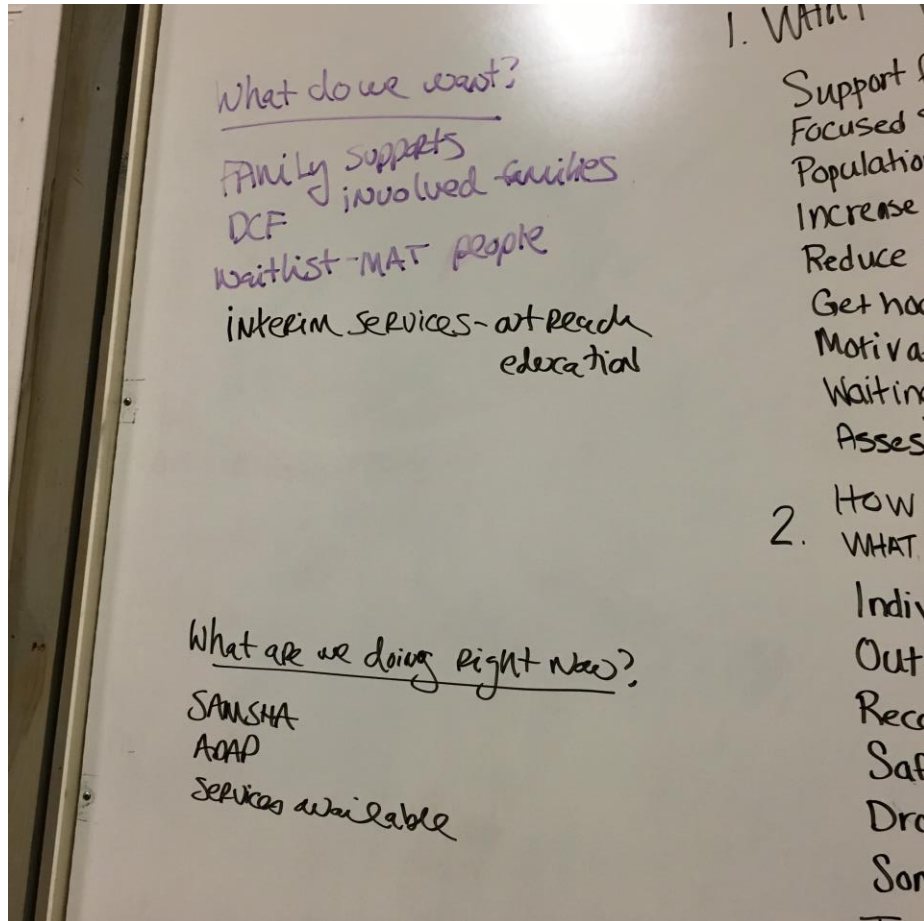 What do we want?
FAmiLy supports
DCF involved families
waitlist-MAT people
interim services - outreach
education
What are we doing right now?
SAMSHA
ADAP
Services available
1. WHAT
Support
Focused
Increase
Reduce
Get
Assess
2. HOW
WHAT
Out